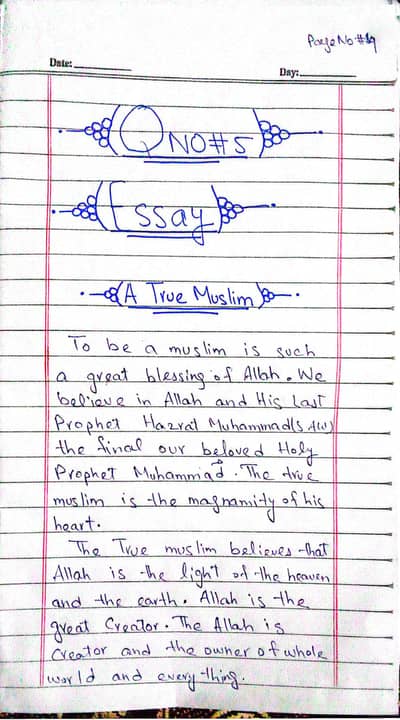 Page No #19
Date:
Day:
Q NO# 5
Essay
A True Muslim
To be a muslim is such
a great blessing of Allah. We
believe in Allah and His Last
Prophet Hazrat Muhammad(SAW)
the final our beloved Holy
Prophet Muhammad. The true
muslim is the magnamity of his
heart.
The True muslim believes that
Allah is the light of the heaven
and the earth. Allah is the
great Creator. The Allah is
Creator and the owner of whole
world and every thing.